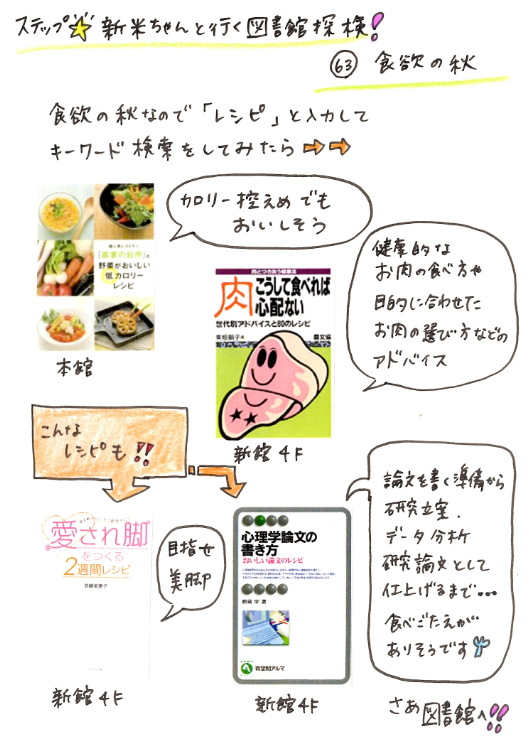 ステップ☆新米ちゃんと行く図書館探検!
63 食欲の秋
食欲の秋なので「レシピ」と入力して
キーワード検索をしてみたら
カロリー控えめでも
おいしそう
「農家の台所」の
野菜がおいしい
低カロリー
レシピ
本館
肉とつきあう健康法
肉こうして食べれば
心配ない
世代別アドバイスと80のレシピ
東畑朝子著
農文協
新館4F
健康的な
お肉の食べ方や
目的に合わせた
お肉の選び方などの
アドバイス
こんな
レシピも!!
愛され脚
をつくる
2週間レシピ
新館4F
目指せ
美脚
心理学論文の
書き方
おいしい論文のレシピ
有斐閣アルマ
新館4F
論文を書く準備から
研究立案、
データ分析
研究論文として
仕上げるまで…
食べごたえが
ありそうです
さあ図書館へ!!